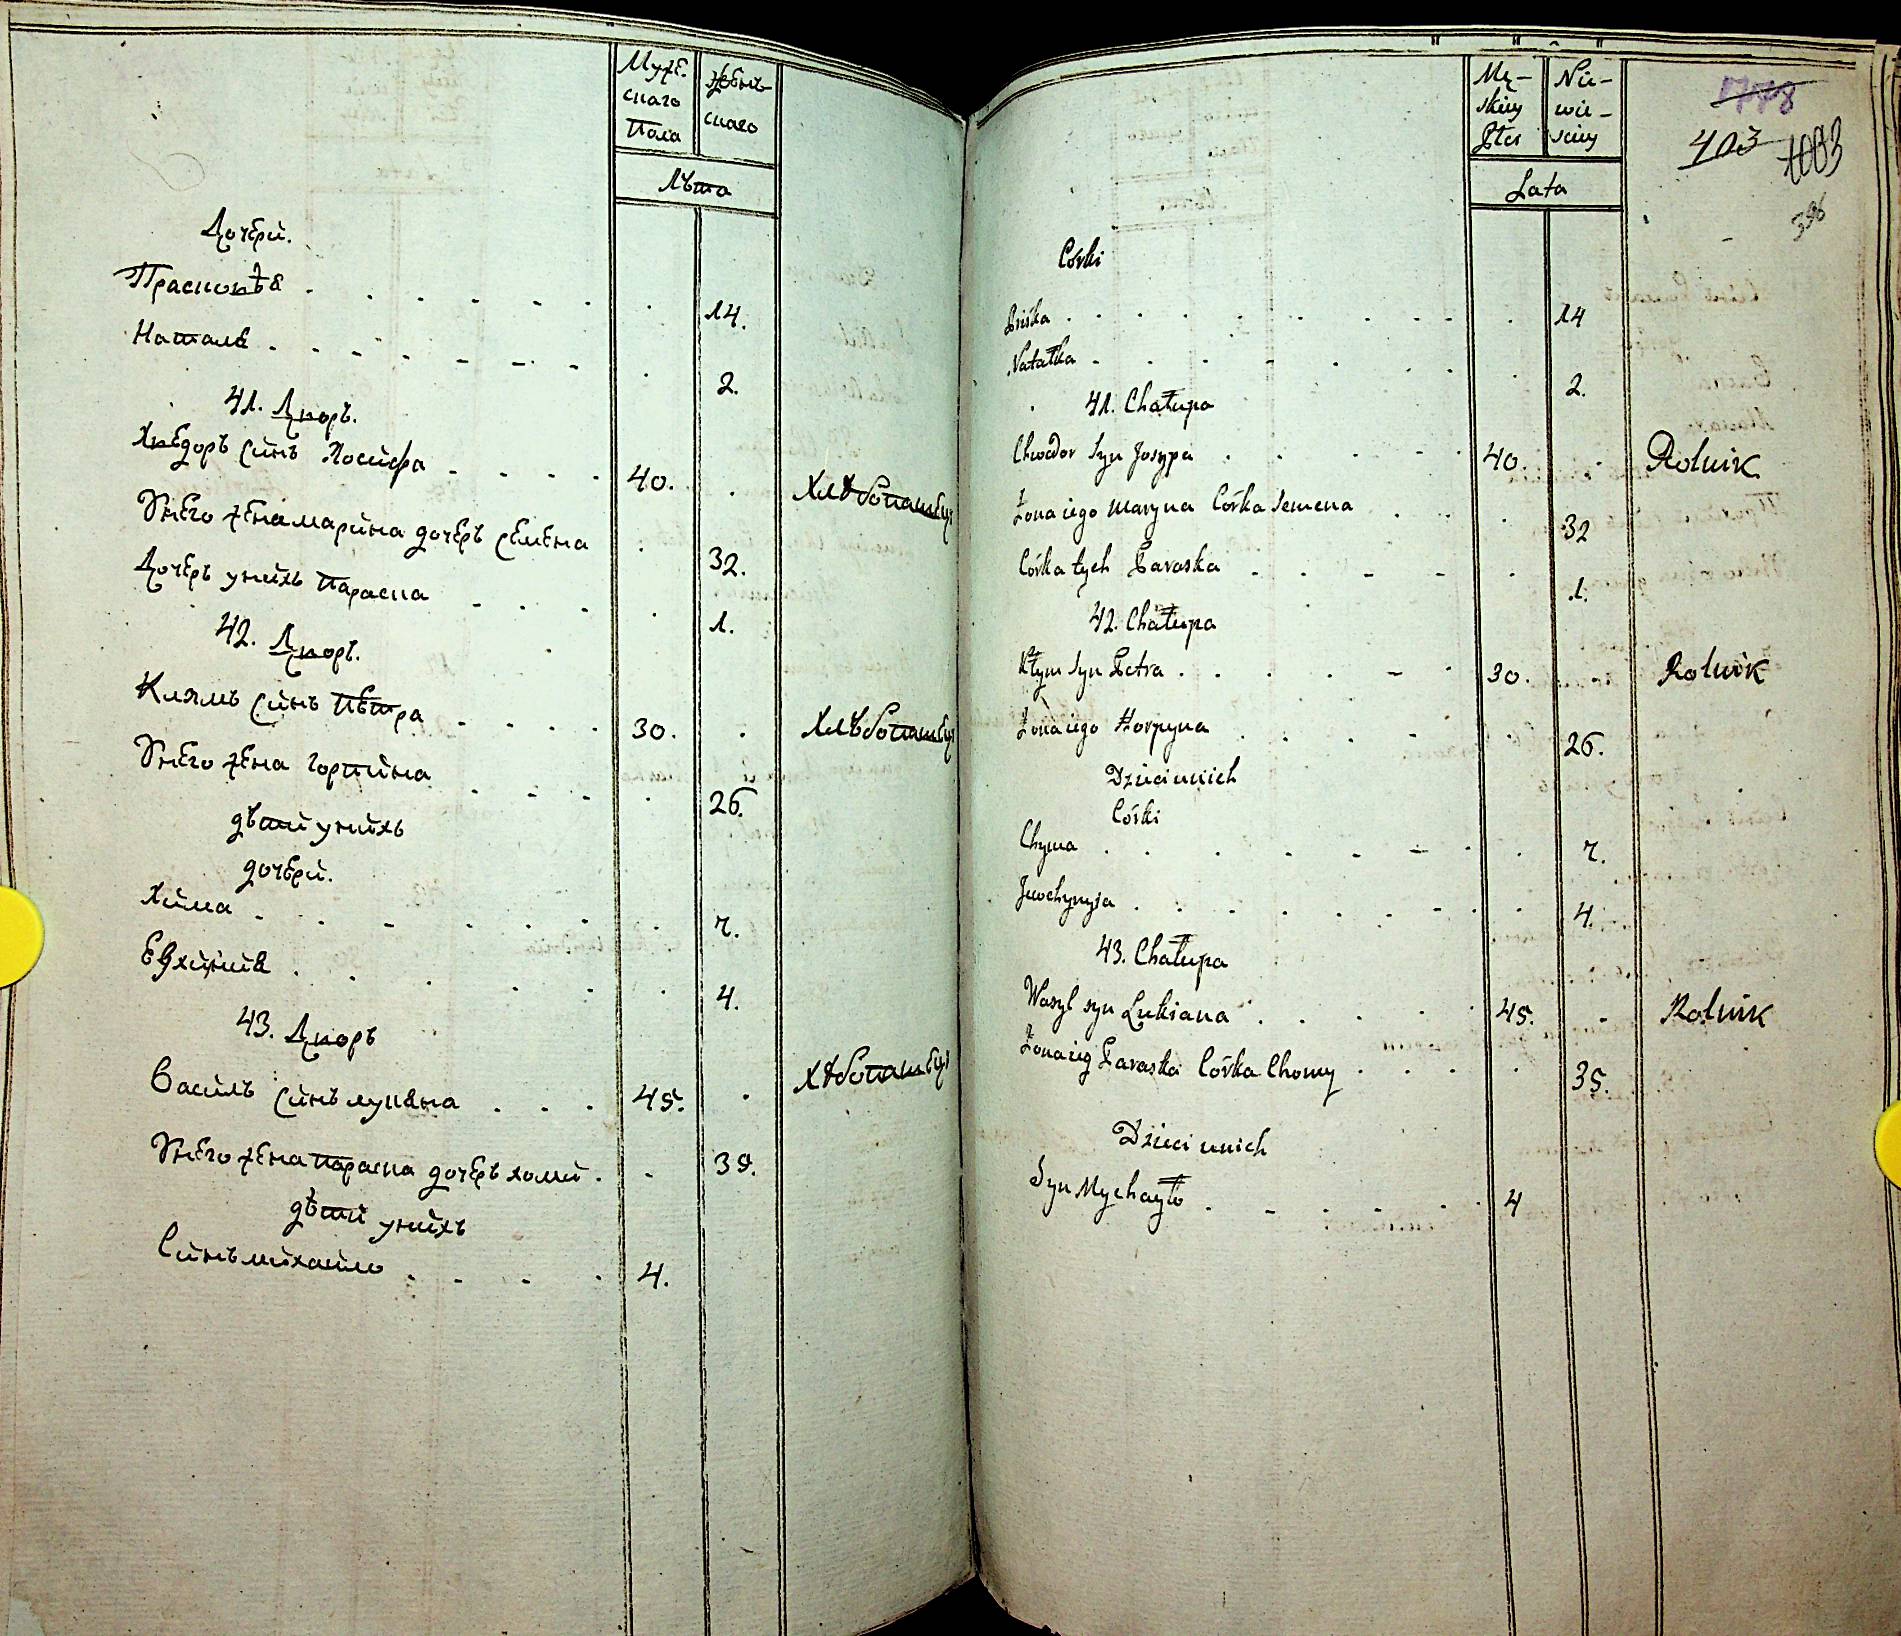 Мужε.
скаго
Пола
Жεнъ-
скаго
Лѣта
Дочεри.
Прасковѣя . . . . . . . 14.
Наталя . . . . . . . 2.
41. Дворъ.
Хвεдоръ Синъ Иосифа . . . . 40. . Хлѣбопашεцъ
Унεго жεна марина дочεръ Сεмεна . 32.
Дочεръ унихъ Параска . . . . 1.
42. Дворъ.
Климъ Синъ Пεтра . . . . 30. . Хлѣбопашεцъ
Унεго жεна горпина . . . . 26.
дѣти унихъ
дочεри.
Хима . . . . . . . 7.
Євхимия . . . . . . 4.
43. Дворъ
Василъ Синъ лукяна . . . 45. . Хлѣбопашεцъ
Унεго жεна Параска дочεръ хоми . . 39.
дѣти унихъ
Синъ михайло . . . . 4.
Mę-
skiey
Płci
Nie-
wie-
sciey
Lata
1778
403 1003
396
Córki
Priśka . . . . . . . . 14
Natałka . . . . . . . 2.
41. Chałupa
Chwedor Syn Josypa . . . . 40. . Rolnik
Żona iego Maryna Córka Semena . . . 32
Córka tych Paraska . . . . . 1.
42. Chałupa
Kłym Syn Petra . . . . . 30. . Rolnik
Żona iego Horpyna . . . . . 26.
Dzieci unich
Córki
Chyma . . . . . . . . 7.
Jewchymyja . . . . . . . . 4.
43. Chałupa
Wasyl syn Lukiana . . . . 45. . Rolnik
Żona ieg Paraska Córka Chomy . . . . 35.
Dzieci unich
Syn Mychayło . . . . . 4